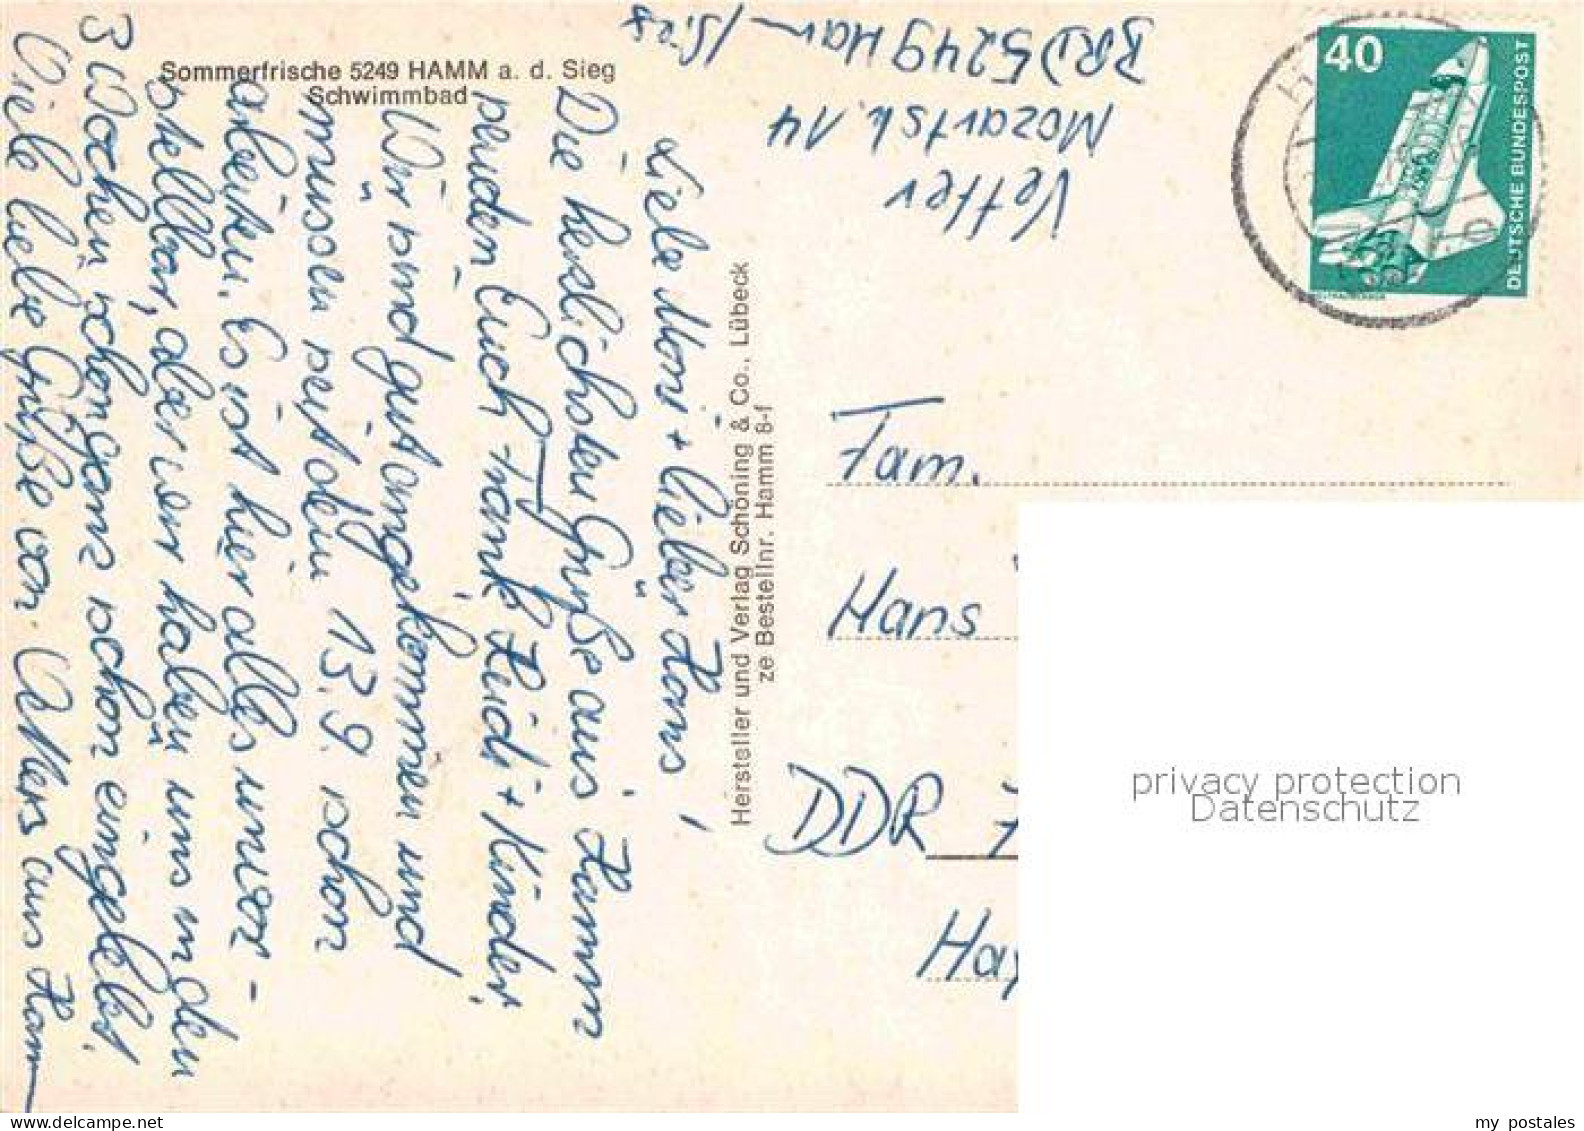 Sommerfrische 5249 HAMM a. d. Sieg
Schwimmbad
Liebe Moni + lieber Hans!
Die herzlichsten Grüße aus Hamm
senden Euch Frank, Heidi + Kinder.
Wir sind gut angekommen und
müssen seit dem 13.9. schon
arbeiten. Es ist hier alles unvor-
stellbar, aber wir haben uns in den
3 Wochen schon ganz schön eingelebt.
Viele liebe Grüße von Vetters aus Hamm
Hersteller und Verlag Schöning & Co., Lübeck
ze Bestellnr. Hamm 8-f
Vetter
Mozartstr. 14
BRD 5249 Hamm/Sieg
40
DEUTSCHE BUNDESPOST
Fam.
Hans
DDR
Hay
privacy protection
Datenschutz
my postales